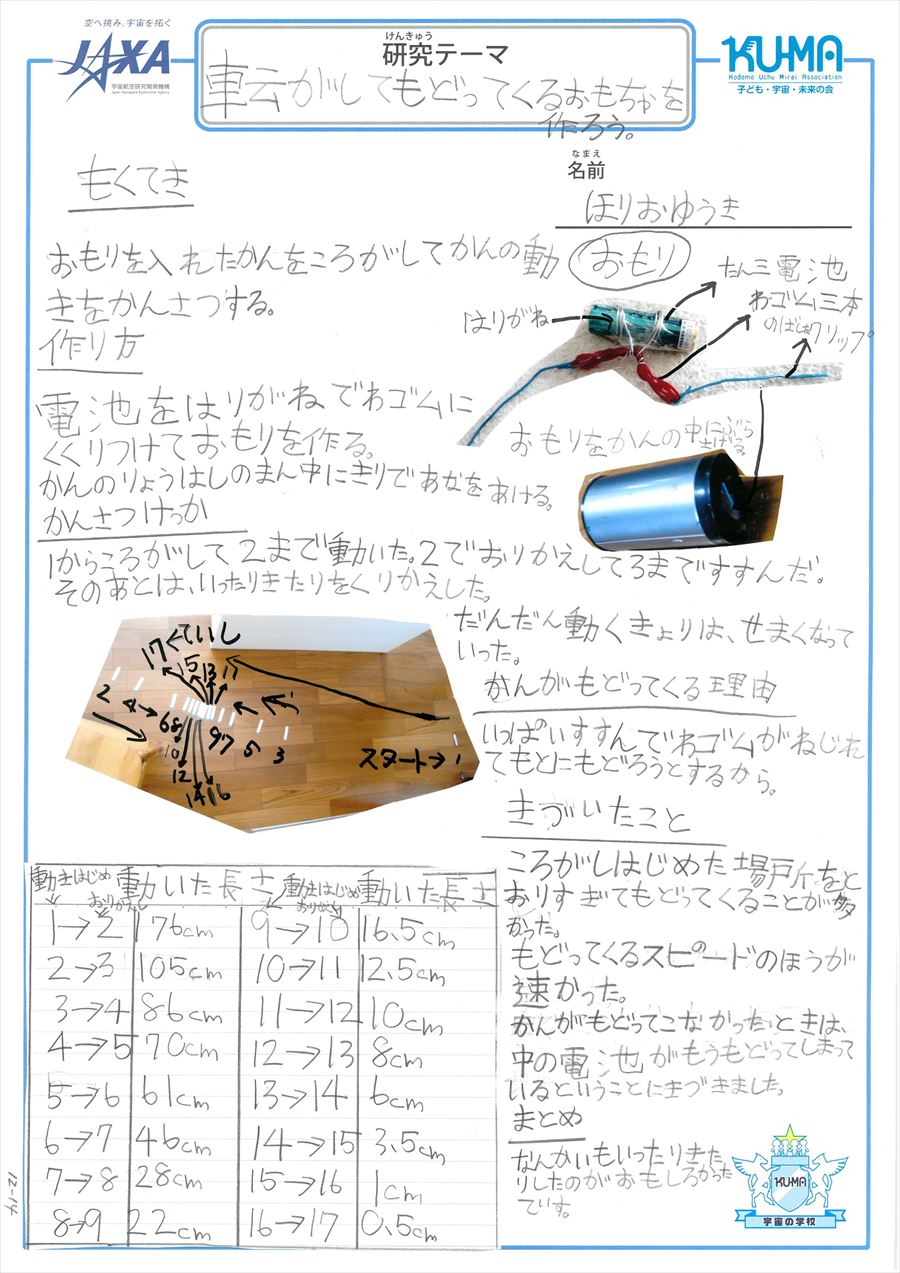 空へ挑み、宇宙を拓く
JAXA
宇宙航空研究開発機構
Japan Aerospace Exploration Agency
けんきゅう
研究テーマ
転がしてもどってくるおもちゃを
作ろう。
KU-MA
Kodomo Uchu Mirai Association
子ども・宇宙・未来の会
なまえ
名前
ほりおゆうき
もくてき
おもりを入れたかんをころがしてかんの動
きをかんさつする。
おもり
たん三電池
わゴム三本
のばしたクリップ
はりがね
おもりをかんの中にぶら
さげる。
作り方
電池をはりがねでわゴムに
くくりつけておもりを作る。
かんのりょうはしのまん中にきりであなをあける。
かんさつけっか
1からころがして2まで動いた。2でおりかえして3まですすんだ。
そのあとは、いったりきたりをくりかえした。
だんだん動くきょりは、せまくなって
いった。
17←ていし
15 13 11
2 4→ 6 8 9 7 5 3
10
12
14 16
スタート→ 1
かんがもどってくる理由
いっぱいすすんでわゴムがねじれ
てもとにもどろうとするから。
きづいたこと
ころがしはじめた場所をと
おりすぎてもどってくることが多
かった。
もどってくるスピードのほうが
速かった。
かんがもどってこなかったときは、
中の電池がもうもどってしまって
いるということにきづきました。
まとめ
なんかいもいったりきた
りしたのがおもしろかった
です。
動きはじめ おりかえし 動いた長さ 動きはじめ おりかえし 動いた長さ
1→2 176cm 9→10 16.5cm
2→3 105cm 10→11 12.5cm
3→4 86cm 11→12 10cm
4→5 70cm 12→13 8cm
5→6 61cm 13→14 6cm
6→7 46cm 14→15 3.5cm
7→8 28cm 15→16 1cm
8→9 22cm 16→17 0.5cm
12-14
KUMA
宇宙の学校